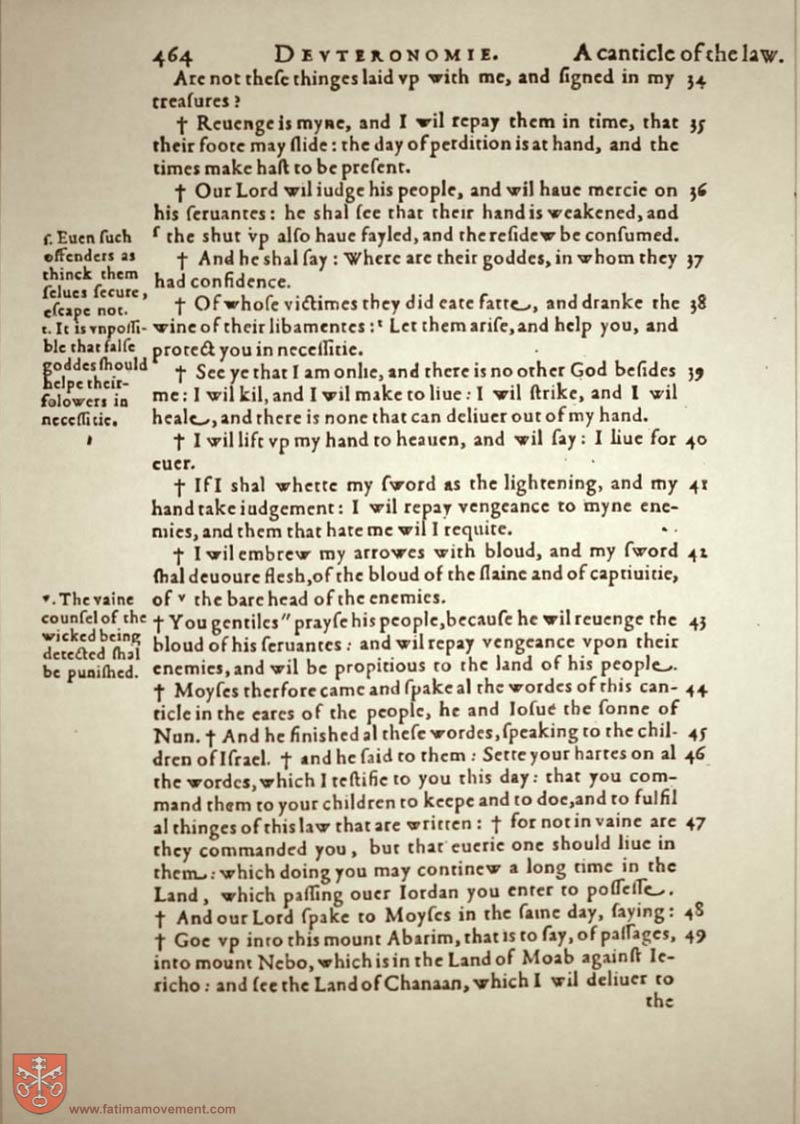 464 DEVTERONOMIE. A canticle of the law.
Are not theſe thinges laid vp with me, and ſigned in my 34
treaſures?
† Reuenge is myne, and I wil repay them in time, that 35
their foote may ſlide: the day of perdition is at hand, and the
times make haſt to be preſent.
† Our Lord wil iudge his people, and wil haue mercie on 36
his ſeruantes: he shal ſee that their hand is weakened, and
ſ the shut vp alſo haue fayled, and the reſidew be conſumed.
ſ. Euen ſuch
offenders as
thinck them
ſelues ſecure,
eſcape not.
† And he shal ſay: Where are their goddes, in whom they 37
had confidence.
† Of whoſe victimes they did eate fatte, and dranke the 38
wine of their libamentes: t Let them ariſe, and help you, and
protect you in neceſſitie.
t. It is vnpoſſi-
ble that falſe
goddes ſhould
helpe their-
folowers in
neceſſitie.
† See ye that I am onlie, and there is no other God beſides 39
me: I wil kil, and I wil make to liue: I wil ſtrike, and I wil
heale, and there is none that can deliuer out of my hand.
† I wil lift vp my hand to heauen, and wil ſay: I liue for 40
euer.
† If I shal whette my ſword as the lightening, and my 41
hand take iudgement: I wil repay vengeance to myne ene-
mies, and them that hate me wil I requite.
† I wil embrew my arrowes with bloud, and my ſword 42
ſhal deuoure fleſh, of the bloud of the ſlaine and of captiuitie,
of v the bare head of the enemies.
v. The vaine
counſel of the
wicked being
detected ſhal
be puniſhed.
† You gentiles" prayſe his people, becauſe he wil reuenge the 43
bloud of his ſeruantes: and wil repay vengeance vpon their
enemies, and wil be propitious to the land of his people.
† Moyſes therfore came and ſpake al the wordes of this can- 44
ticle in the eares of the people, he and Ioſué the ſonne of
Nun. † And he finished al theſe wordes, ſpeaking to the chil- 45
dren of Iſrael. † and he ſaid to them: Sette your hartes on al 46
the wordes, which I teſtifie to you this day: that you com-
mand them to your children to keepe and to doe, and to fulfil
al thinges of this law that are written: † for not in vaine are 47
they commanded you, but that euerie one should liue in
them: which doing you may continew a long time in the
Land, which paſſing ouer Iordan you enter to poſſeſſe.
† And our Lord ſpake to Moyſes in the ſame day, ſaying: 48
† Goe vp into this mount Abarim, that is to ſay, of paſſages, 49
into mount Nebo, which is in the Land of Moab againſt Ie-
richo: and ſee the Land of Chanaan, which I wil deliuer to
the
www.fatimamovement.com